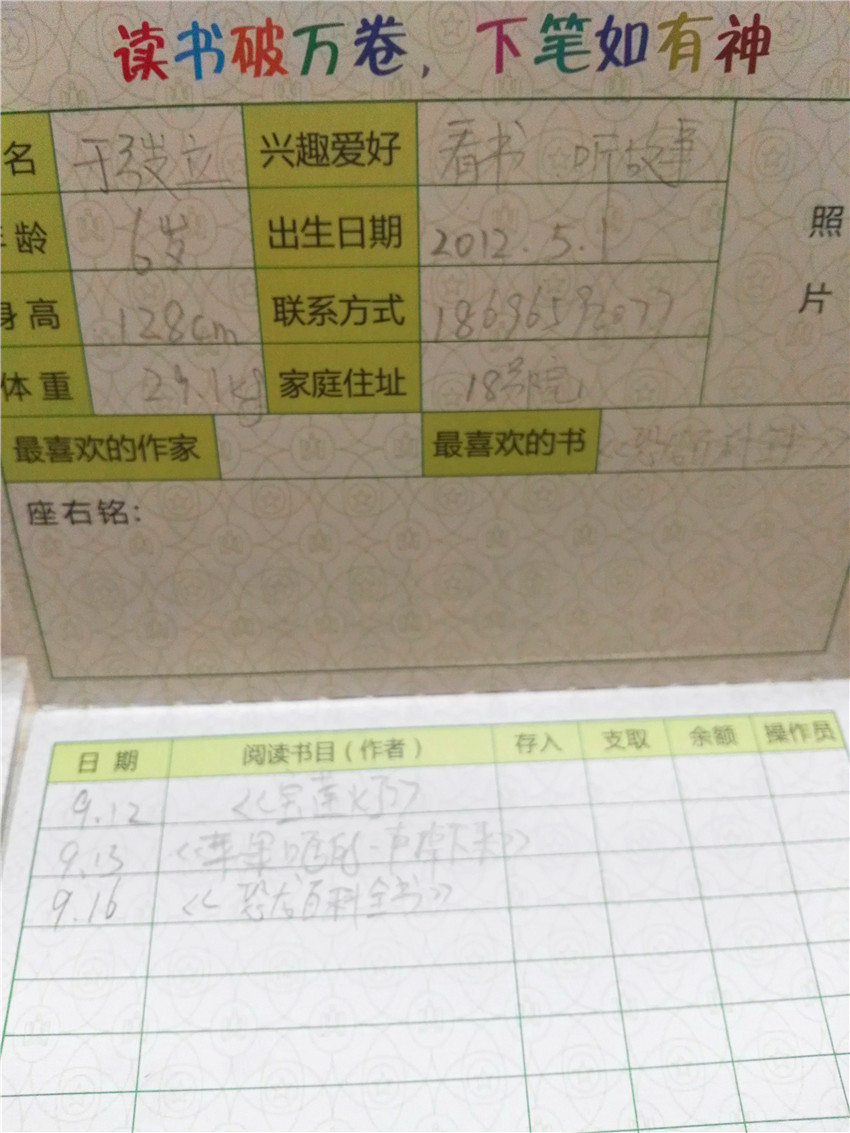 读书破万卷，下笔如有神
名 于 立 兴趣爱好 看书 听故事
年龄 6岁 出生日期 2012.5.1 照
身高 128cm 联系方式 片
体重 家庭住址 18号院
最喜欢的作家 最喜欢的书 《恐龙百科全书》
座右铭：
日期 阅读书目（作者） 存入 支取 余额 操作员
9.12 《宝莲灯》
9.13 《苹果 的一声掉下来》
9.16 《恐龙百科全书》